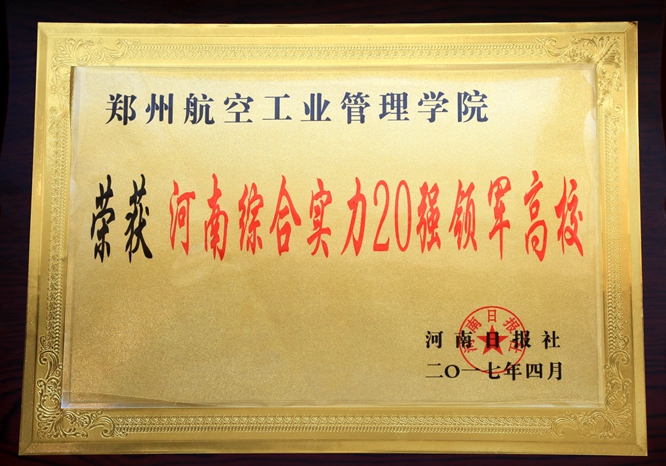 郑州航空工业管理学院
荣获 河南综合实力20强领军高校
河南日报社
二〇一七年四月
河南日报社